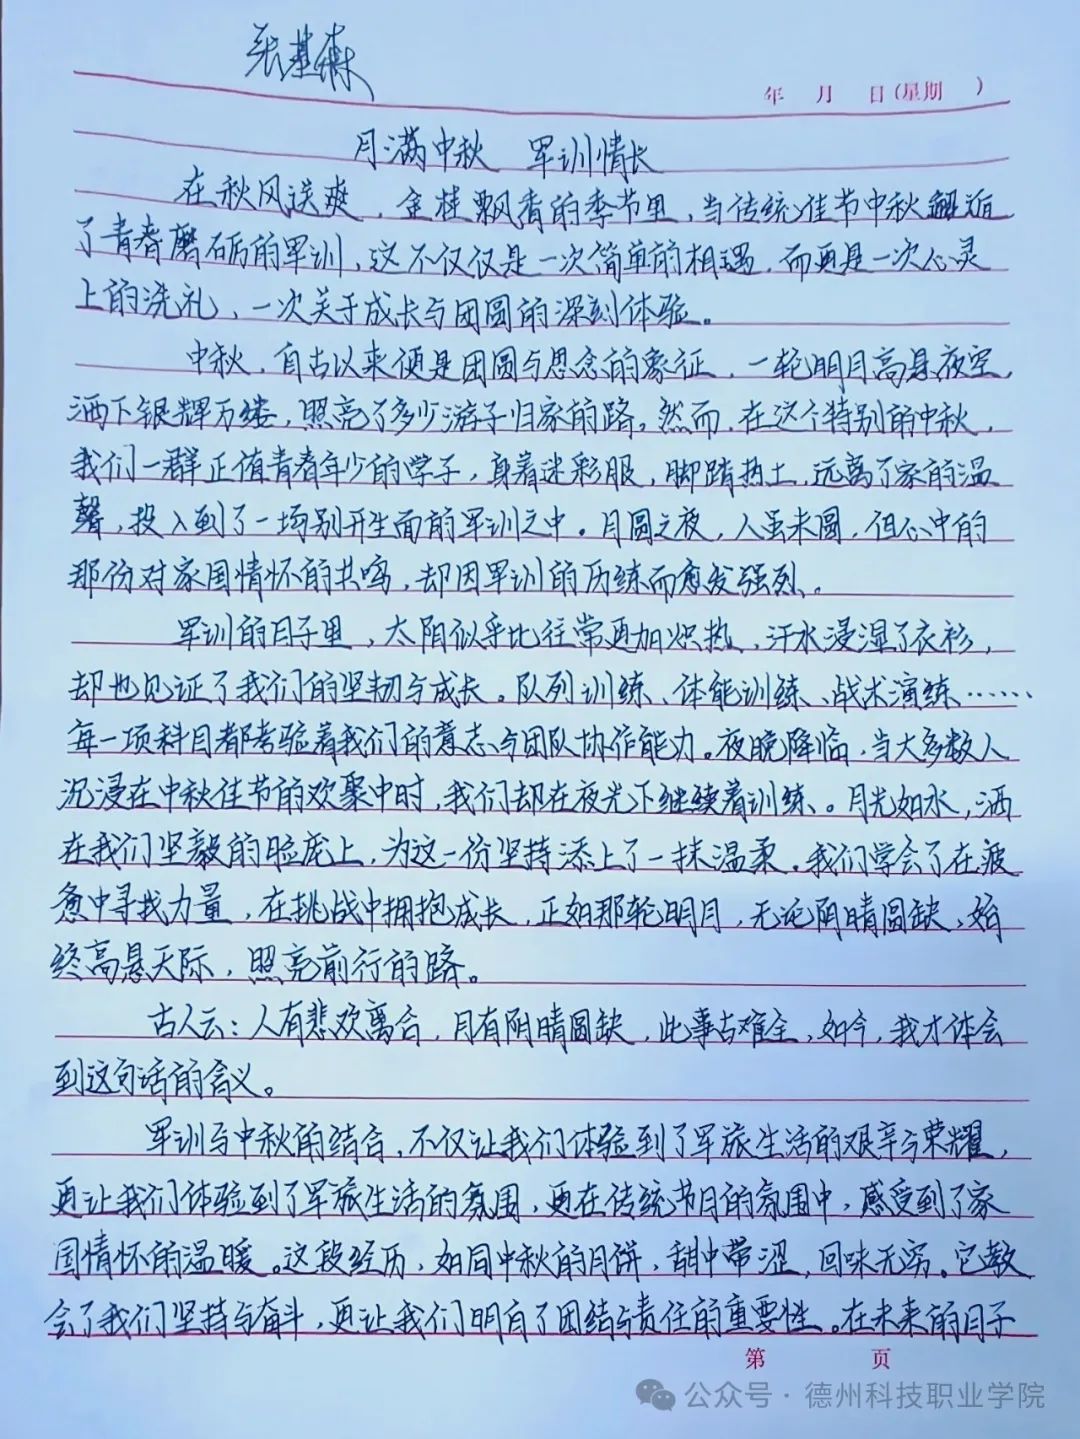 张基森
年 月 日(星期 )
月满中秋 军训情长
在秋风送爽，金桂飘香的季节里，当传统佳节中秋邂逅
了青春磨砺的军训，这不仅仅是一次简单的相遇，而更是一次心灵
上的洗礼、一次关于成长与团圆的深刻体验。
中秋，自古以来便是团圆与思念的象征，一轮明月高悬夜空，
洒下银辉万缕，照亮了多少游子归家的路。然而，在这个特别的中秋，
我们一群正值青春年少的学子，身着迷彩服，脚踏热土，远离了家的温
馨，投入到了一场别开生面的军训之中。月圆之夜，人虽未圆，但心中的
那份对家国情怀的共鸣，却因军训的历练而愈发强烈。
军训的日子里，太阳似乎比往常更加炽热，汗水浸湿了衣衫，
却也见证了我们的坚韧与成长。队列训练、体能训练、战术演练……
每一项科目都考验着我们的意志与团队协作能力。夜晚降临，当大多数人
沉浸在中秋佳节的欢聚中时，我们却在夜光下继续着训练。月光如水，洒
在我们坚毅的脸庞上，为这一份坚持添上了一抹温柔。我们学会了在疲
惫中寻找力量，在挑战中拥抱成长，正如那轮明月，无论阴晴圆缺，始
终高悬天际，照亮前行的路。
古人云：人有悲欢离合，月有阴晴圆缺，此事古难全，如今，我才体会
到这句话的含义。
军训与中秋的结合，不仅让我们体验到了军旅生活的艰辛与荣耀，
更让我们体验到了军旅生活的氛围，更在传统节日的氛围中，感受到了家
国情怀的温暖。这段经历，如同中秋的月饼，甜中带涩，回味无穷。它教
会了我们坚持与奋斗，更让我们明白了团结与责任的重要性。在未来的日子
第 页
公众号·德州科技职业学院